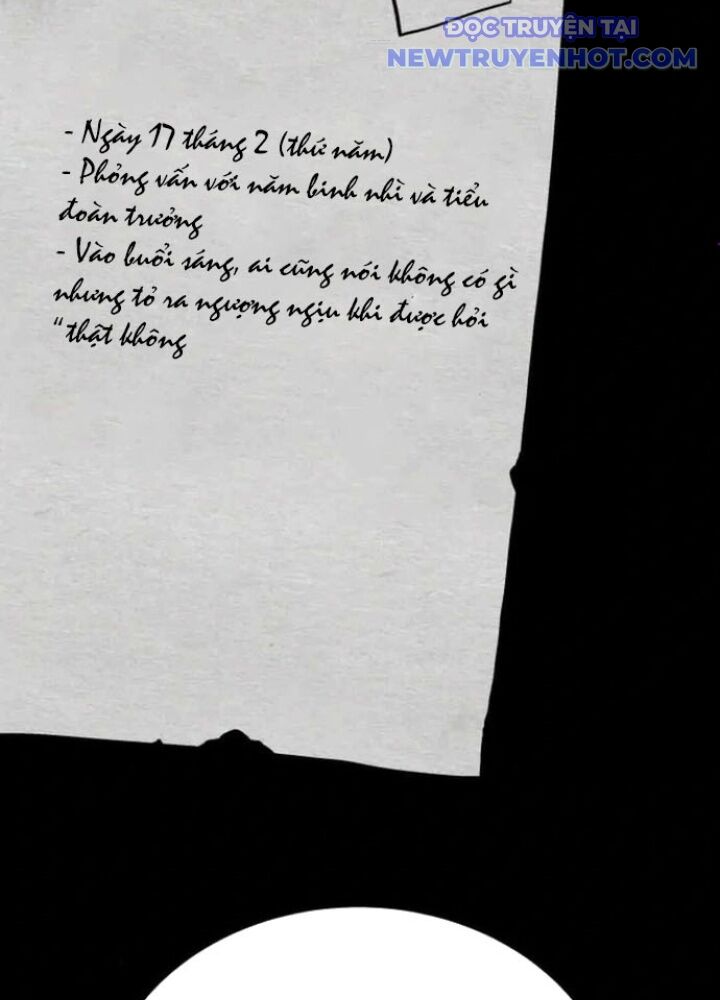 ĐỌC TRUYỆN TẠI
NEWTRUYENHOT.COM
- Ngày 17 tháng 2 (thứ năm)
- Phỏng vấn với năm binh nhì và tiểu
đoàn trưởng
- Vào buổi sáng, ai cũng nói không có gì
nhưng tỏ ra ngượng ngịu khi được hỏi
"thật không